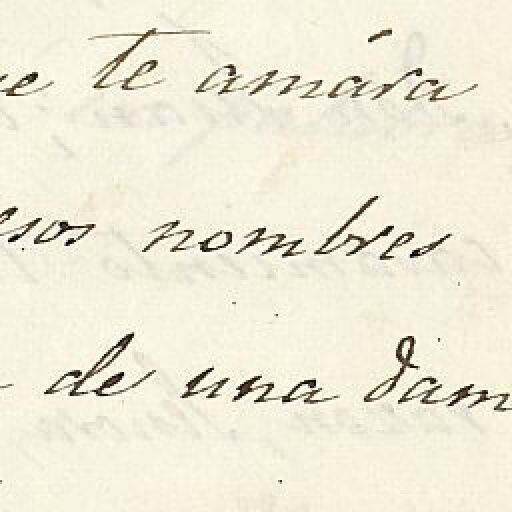 te amára
esos nombres
de una dam